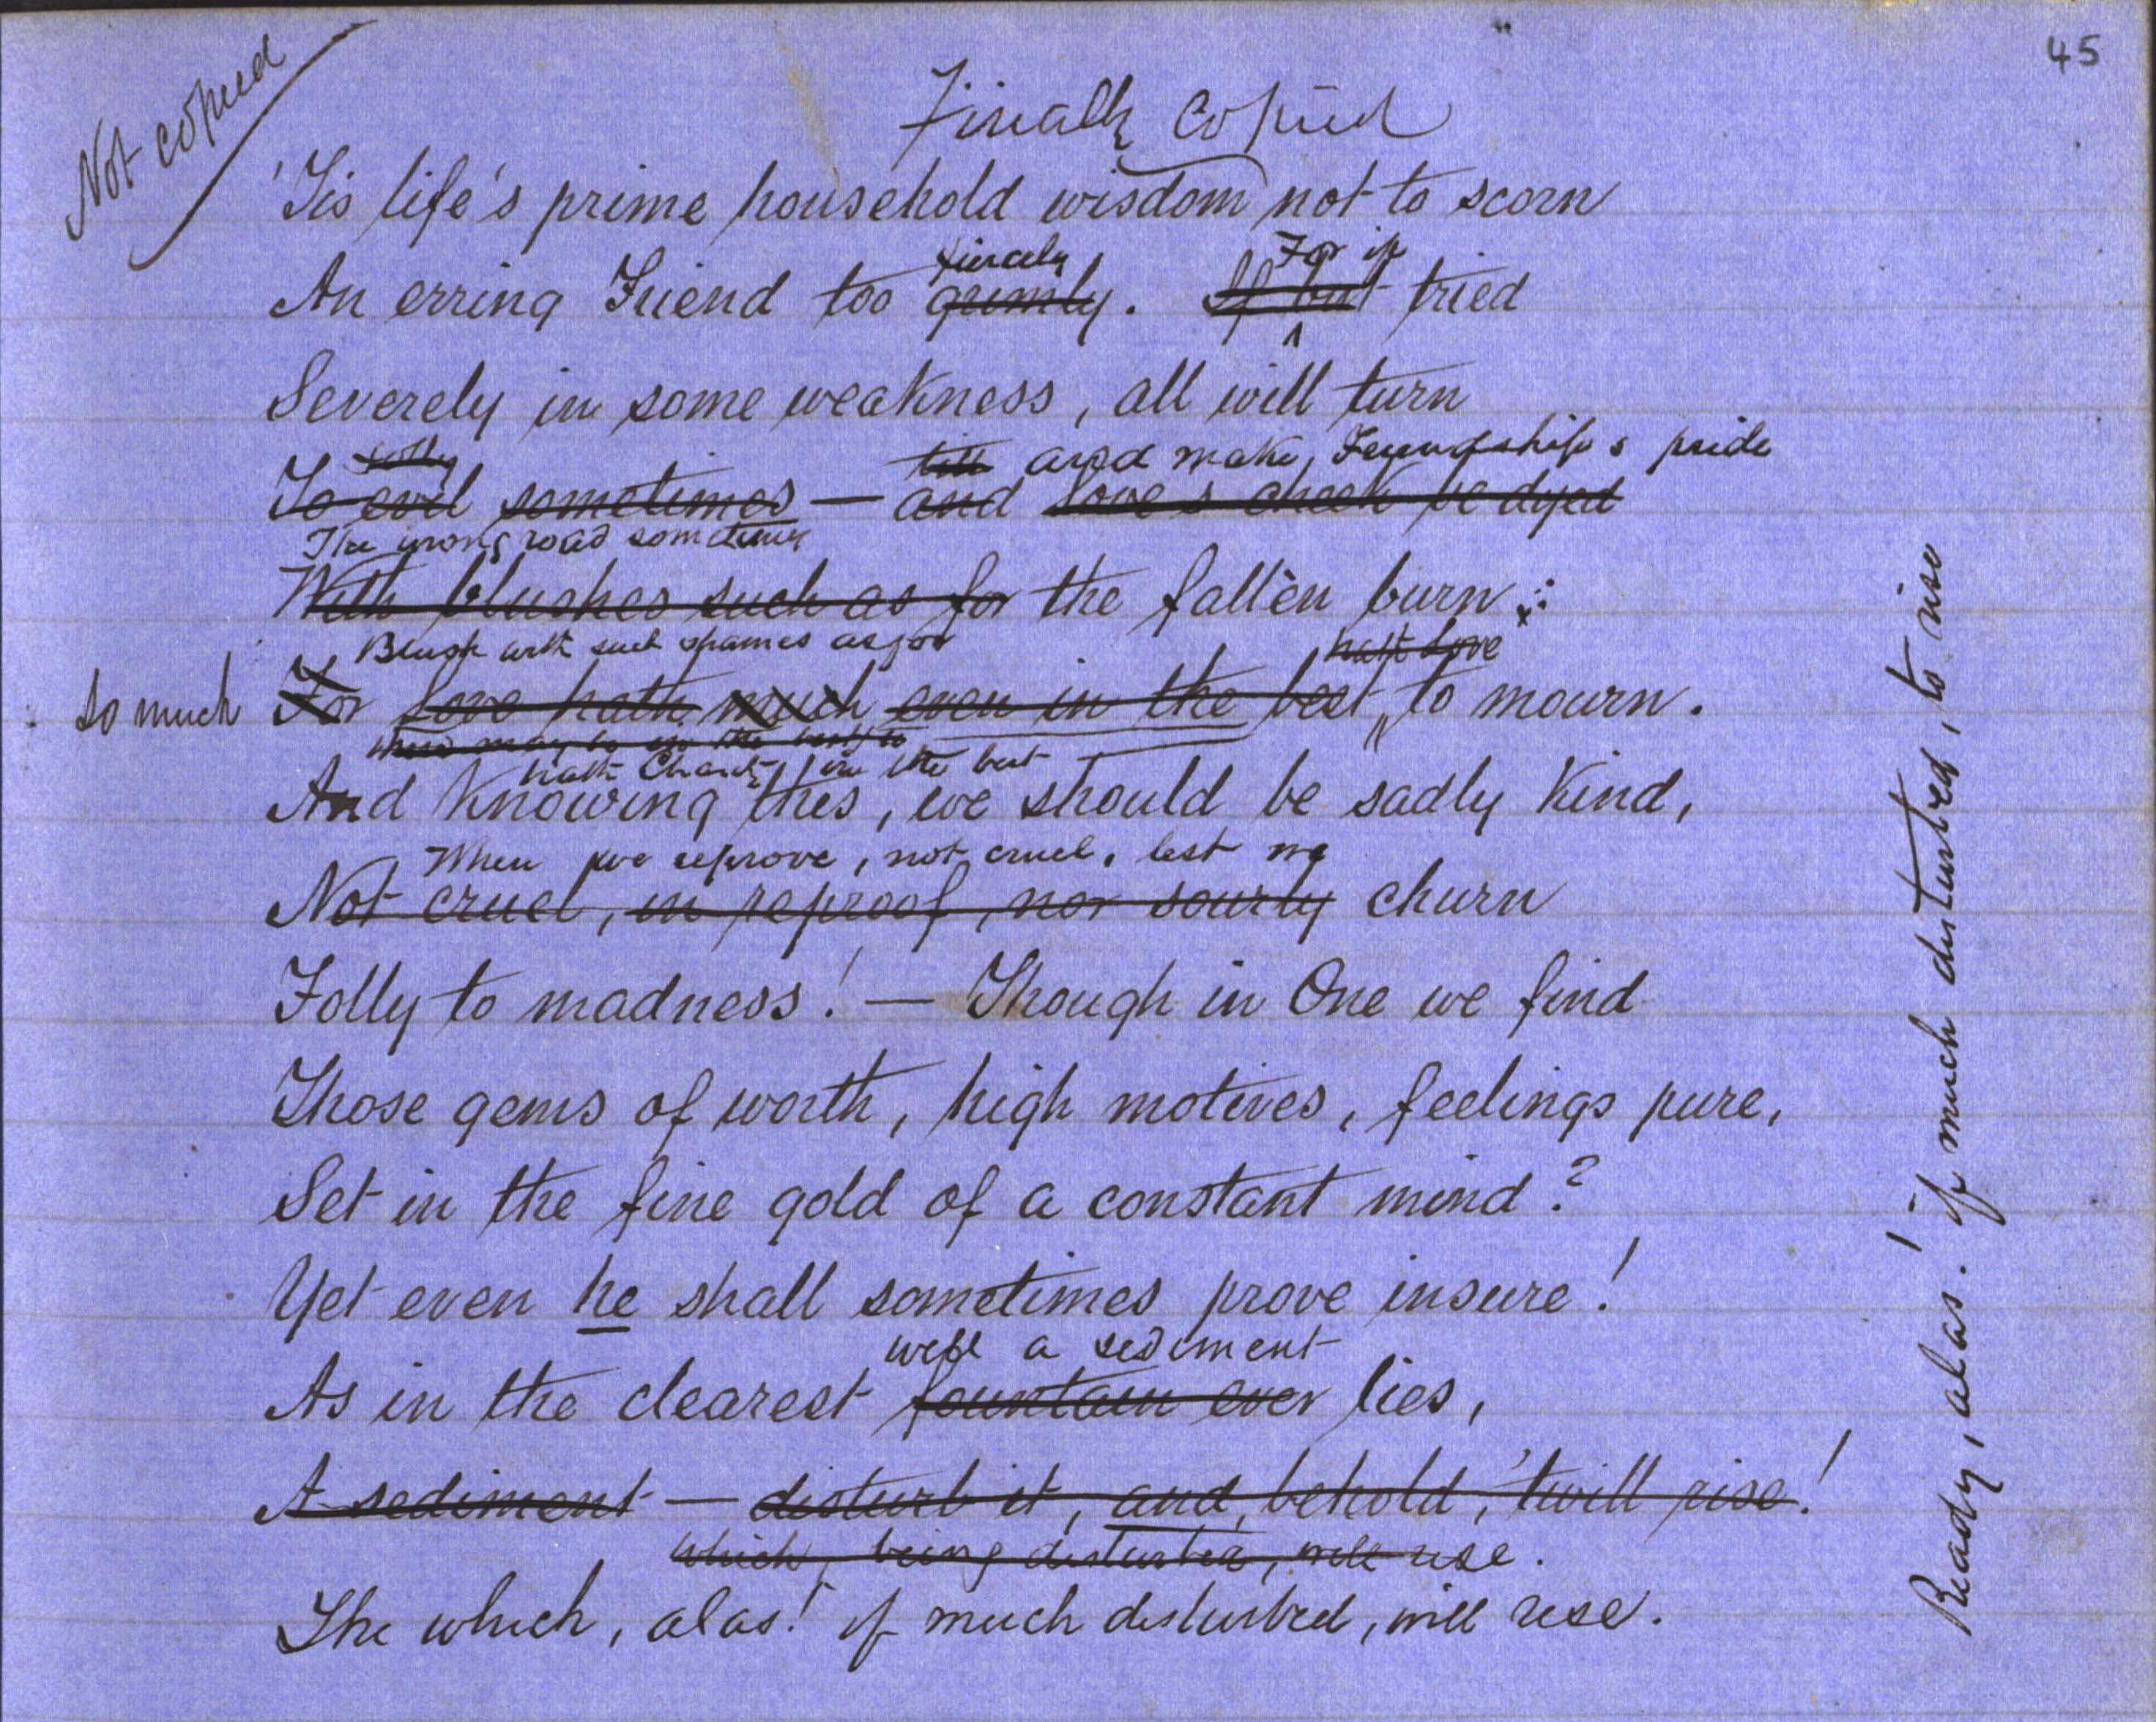 45
Not copied
Finally copied
'Tis life's prime household wisdom not to scorn
fiercely For if
An erring Friend too grimly. If but tried
Severely in some weakness, all will turn
folly till and make Friendship's pride
To evil sometimes — and Love's cheek be dyed
The wrong road sometimes
With blushes such as for the fallen burn:
Blush with such shames as for half Love
so much For Love hath much even in the best, to mourn.
there may be in the best to
hath Charity in the best
And knowing this, we should be sadly kind,
When we reprove, not cruel, lest we
Not cruel, in reproof, nor sourly churn
Folly to madness! — Though in One we find
Those gems of worth, high motives, feelings pure,
Set in the fine gold of a constant mind?
Yet even he shall sometimes prove insure!
well a sediment
As in the clearest fountain ever lies,
A sediment — disturb it, and, behold, 'twill rise!
which, being disturbed, will rise.
The which, alas! if much disturbed, will rise.
Ready, alas! if much disturbed, to rise